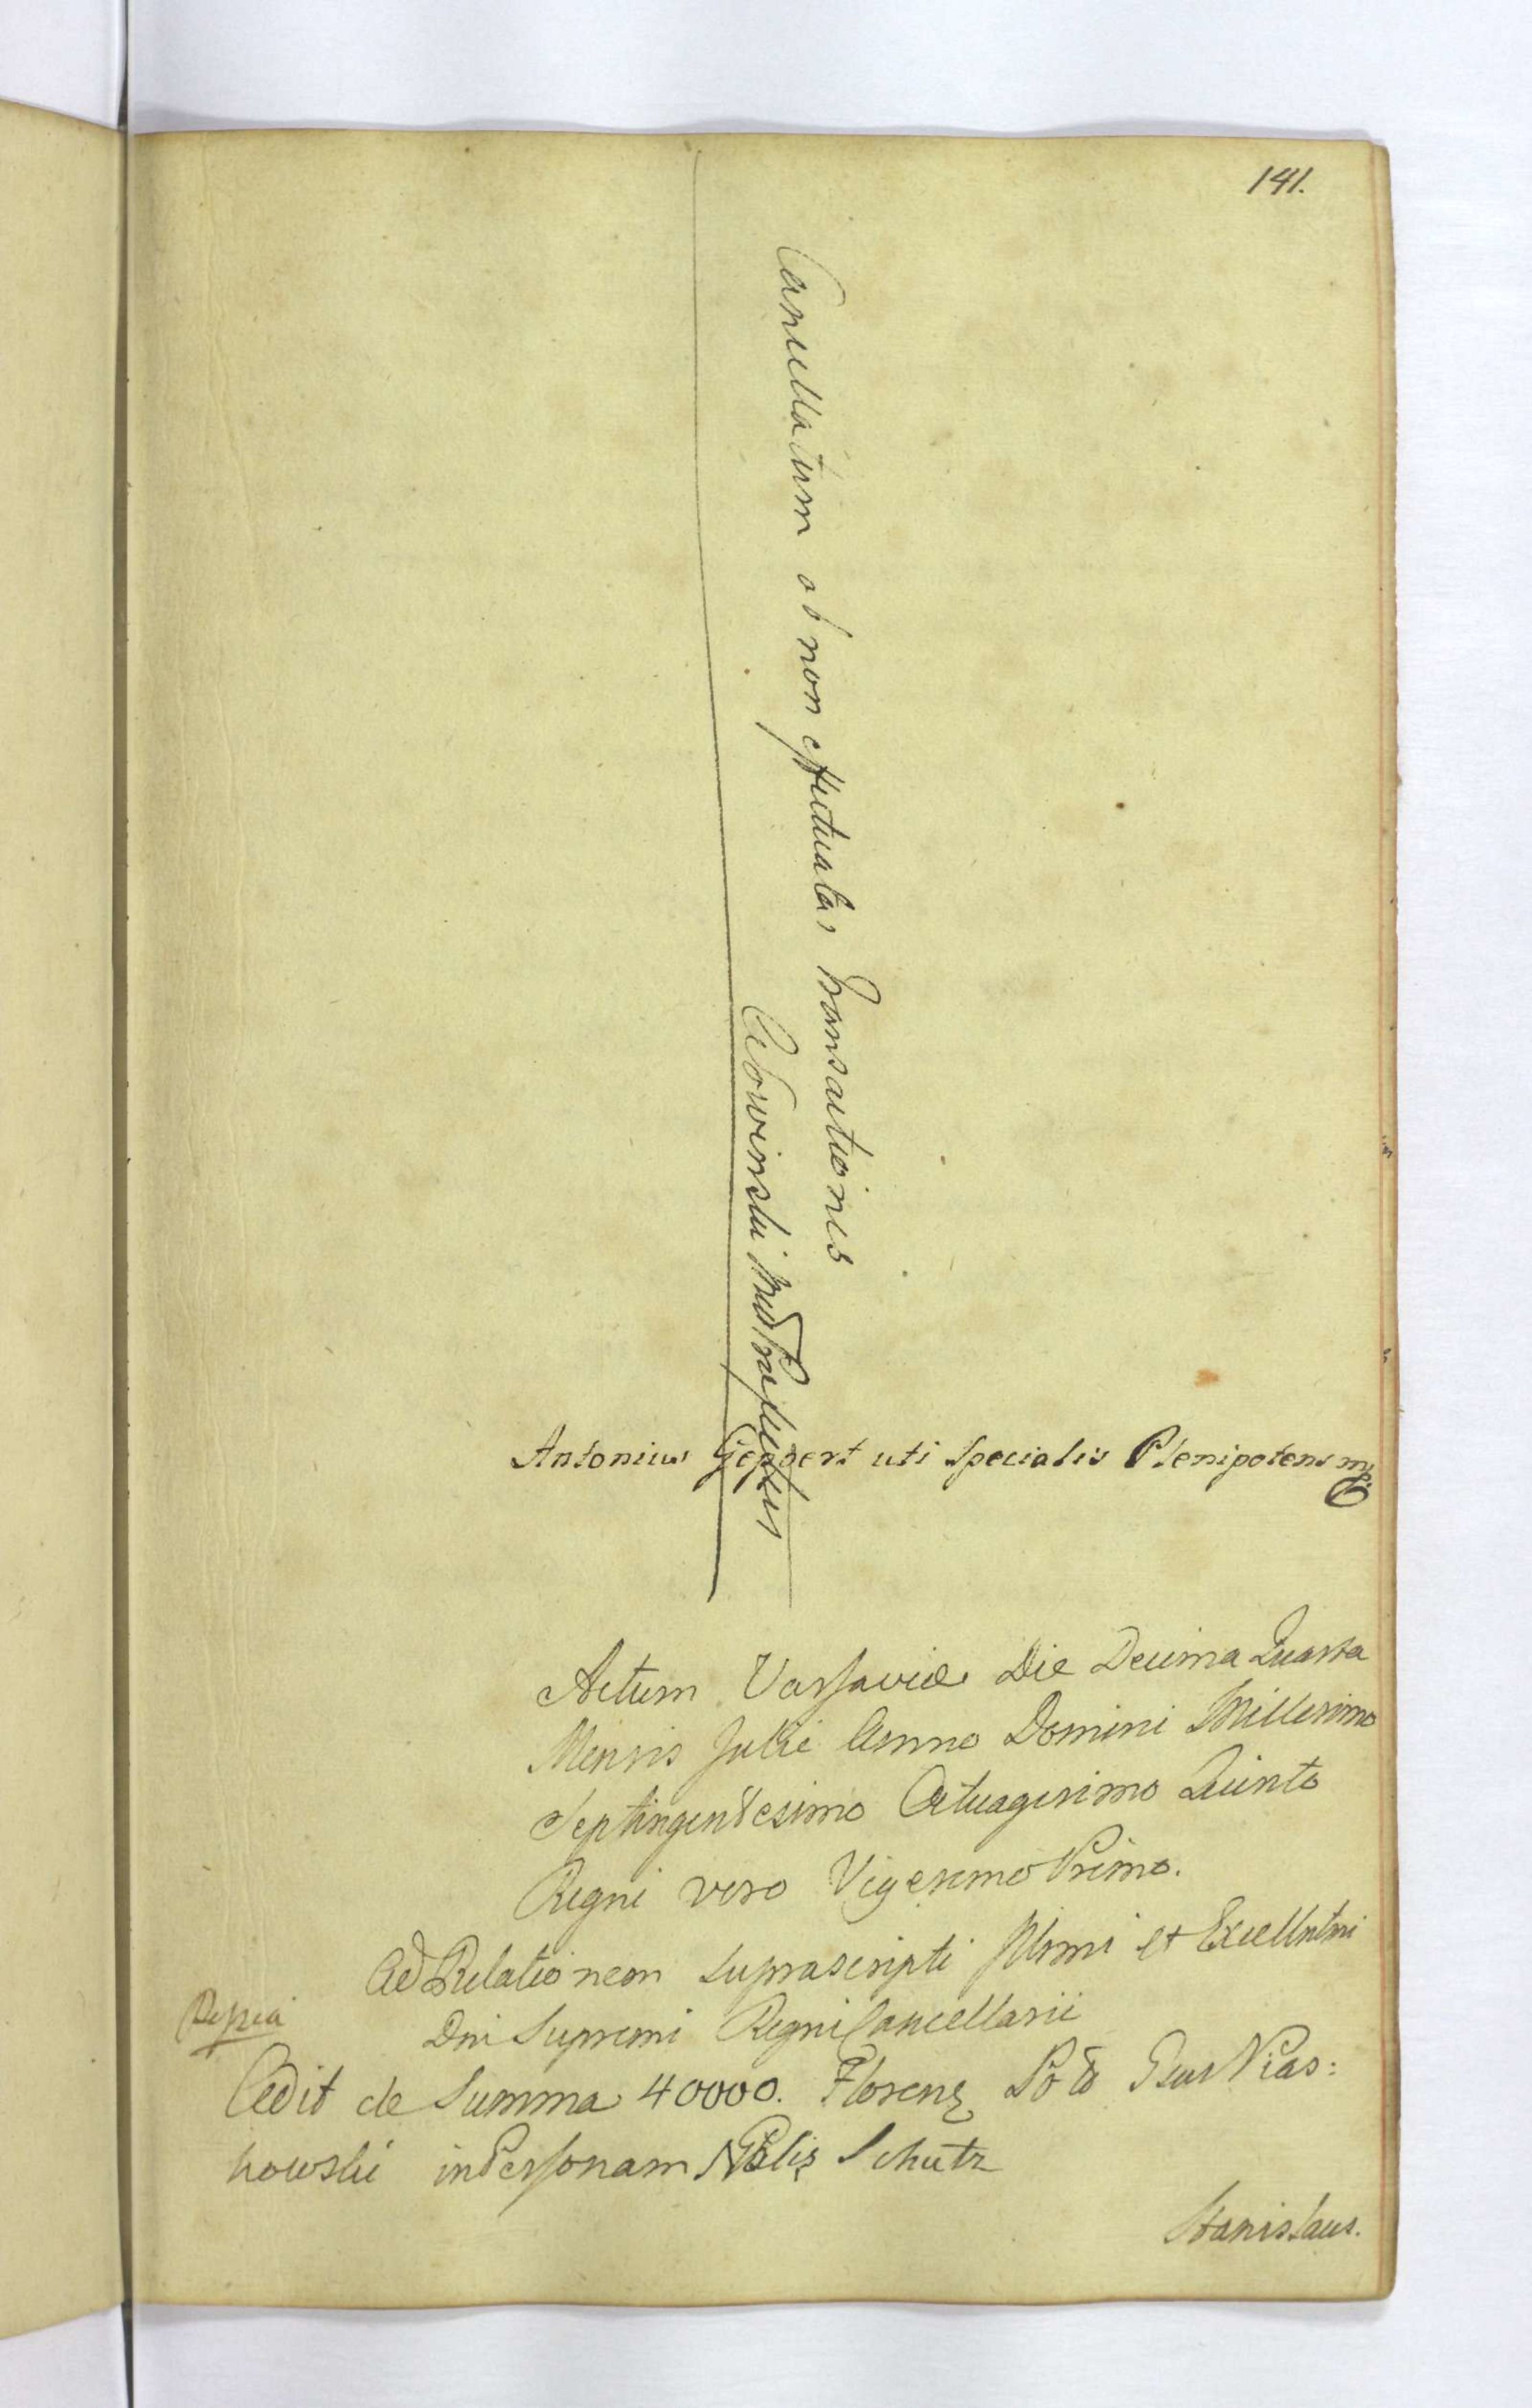 141.
Cancellatum ob non effectuatas Transactiones
Antonius Geppert uti Specialis Plenipotens mp
Actum Varsaviæ Die Decima Quarta
Mensis Julii Anno Domini Millesimo
Septingentesimo Octuagesimo Quinto
Regni vero Vigesimo Primo.
Ad Relationem suprascripti Illmi et Excellntmi
Dni Supremi Regni Cancellarii
Cedit de Summa 40000. Floreng Pias:
kowski in Personam Nblis Schutz
Stanislaus.